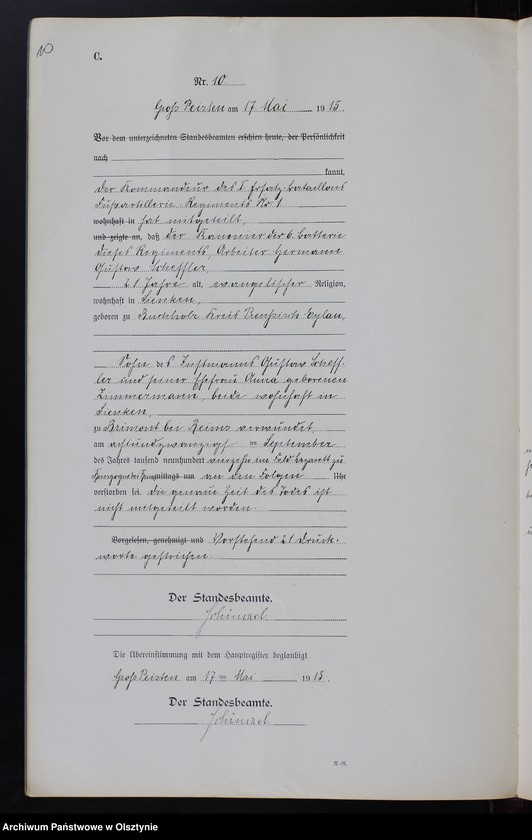 10
C.
Nr. 10
Groß Peisten am 17 Mai 1915.
Vor dem unterzeichneten Standesbeamten erschien heute, der Persönlichkeit
nach
kannt,
der Kommandeur des I Ersatz-Bataillons
Fußartillerie Regiments Nr 1
wohnhaft in hat mitgeteilt,
und zeigte an, daß der Kanonier der 6. Batterie
dieses Regiments, Arbeiter Hermann
Gustav Scheffler,
21 Jahre alt, evangelischer Religion,
wohnhaft in Lienken,
geboren zu Buchholz Kreis Preußisch Eylau,
Sohn des Instmanns Gustav Scheff-
ler und seiner Ehefrau Anna geborenen
Zimmermann, beide wohnhaft in
Lienken,
zu Brimont bei Reims verwundet,
am achtundzwanzigst ten September
des Jahres tausend neunhundert vierzehn im Feldlazarett zu
mittags um an den Folgen Uhr
verstorben sei. Die genaue Zeit des Todes ist
nicht mitgeteilt worden.
Vorgelesen, genehmigt und Vorstehend 21 Druck-
worte gestrichen
Der Standesbeamte.
Die Übereinstimmung mit dem Hauptregister beglaubigt
Groß Peisten am 17 ten Mai 1915.
Der Standesbeamte.
Archiwum Państwowe w Olsztynie